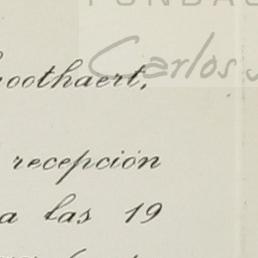 FUNDAC
Carlos
oothaert,
recepción
a las 19